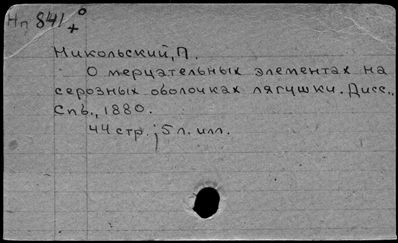 Нп 841 +°
Никольский, П.
О мерцательных элементах на
серозных оболочках лягушки. Дисс.,
Спб., 1880.
44 стр.; 5 л. илл.